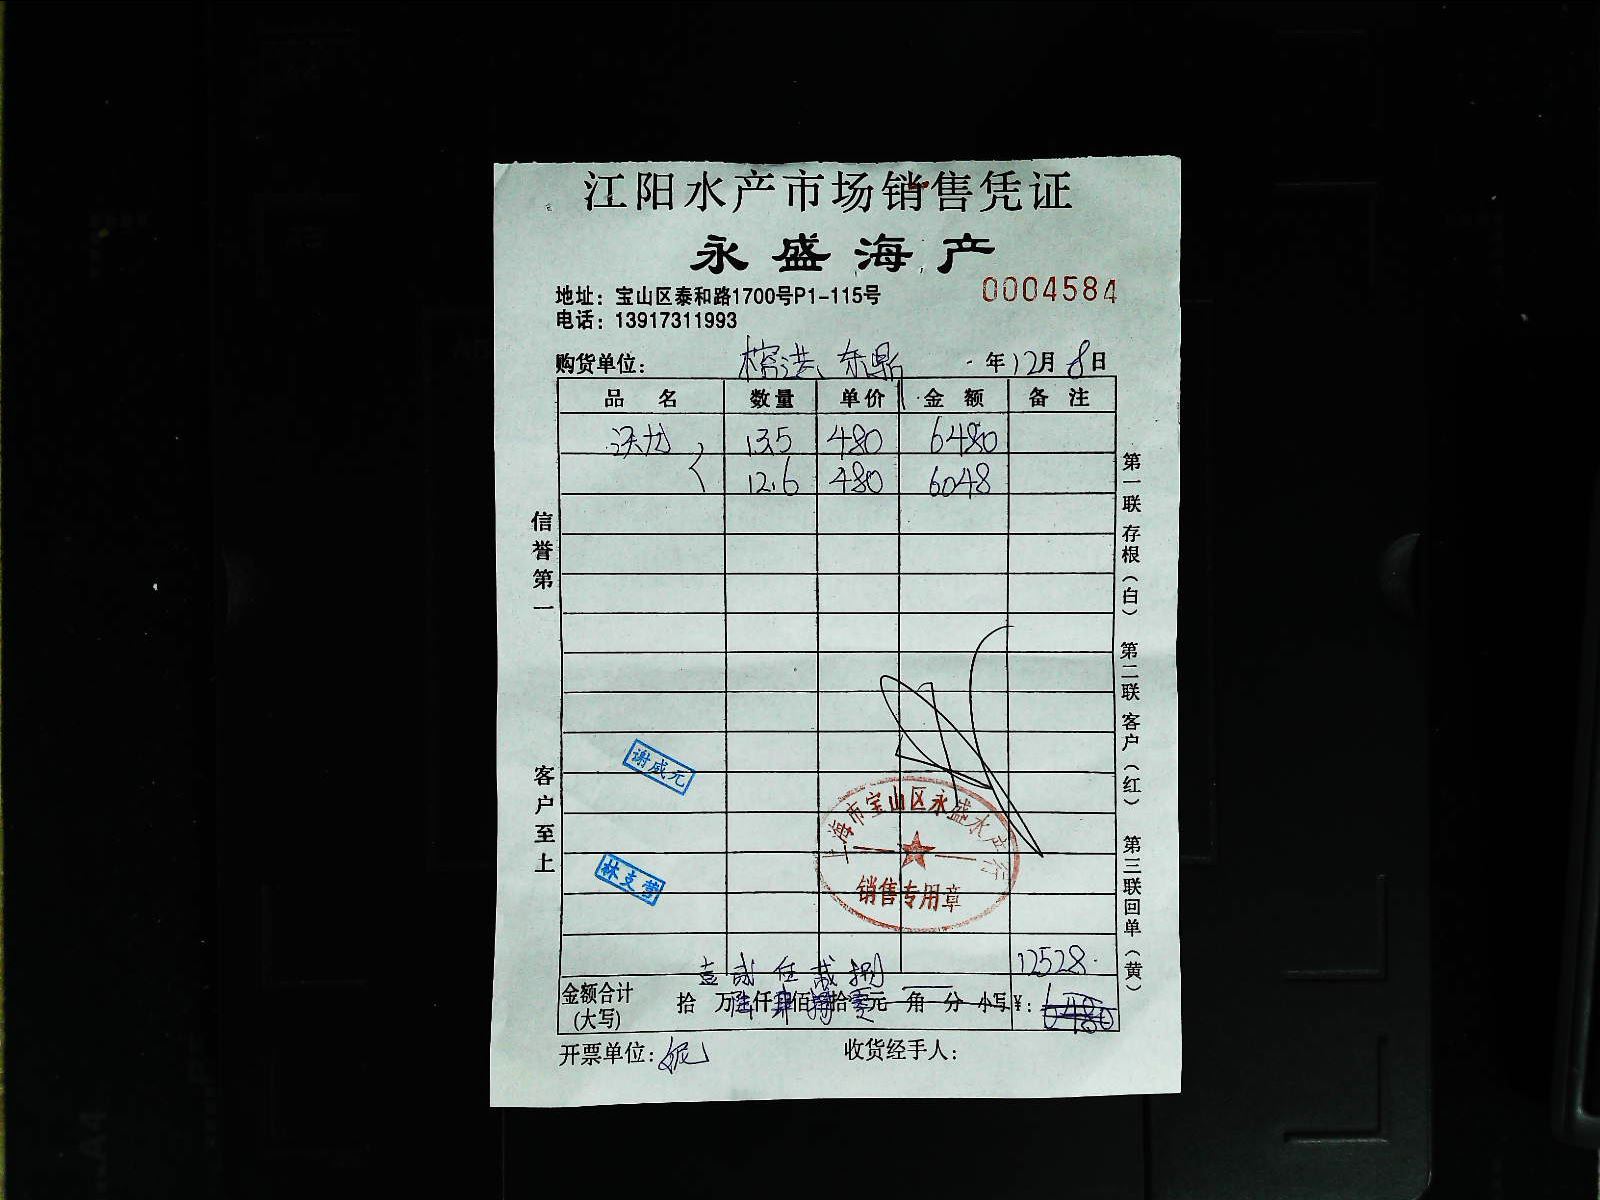 江阳水产市场销售凭证
永盛海产
地址：宝山区泰和路1700号P1-115号
0004584
电话：13917311993
购货单位： 榕港 东鼎 年12月8日
品名 数量 单价 金额 备注
沃龙 13.5 480 6480
12.6 480 6048
信誉第一
客户至上
第一联存根（白） 第二联客户（红） 第三联回单（黄）
谢威元
林支营
上海市宝山区永盛水产行
销售专用章
12528.
金额合计 拾 万 仟 佰 拾 元 角 分 小写¥： 6480
(大写)
开票单位： 妮 收货经手人：